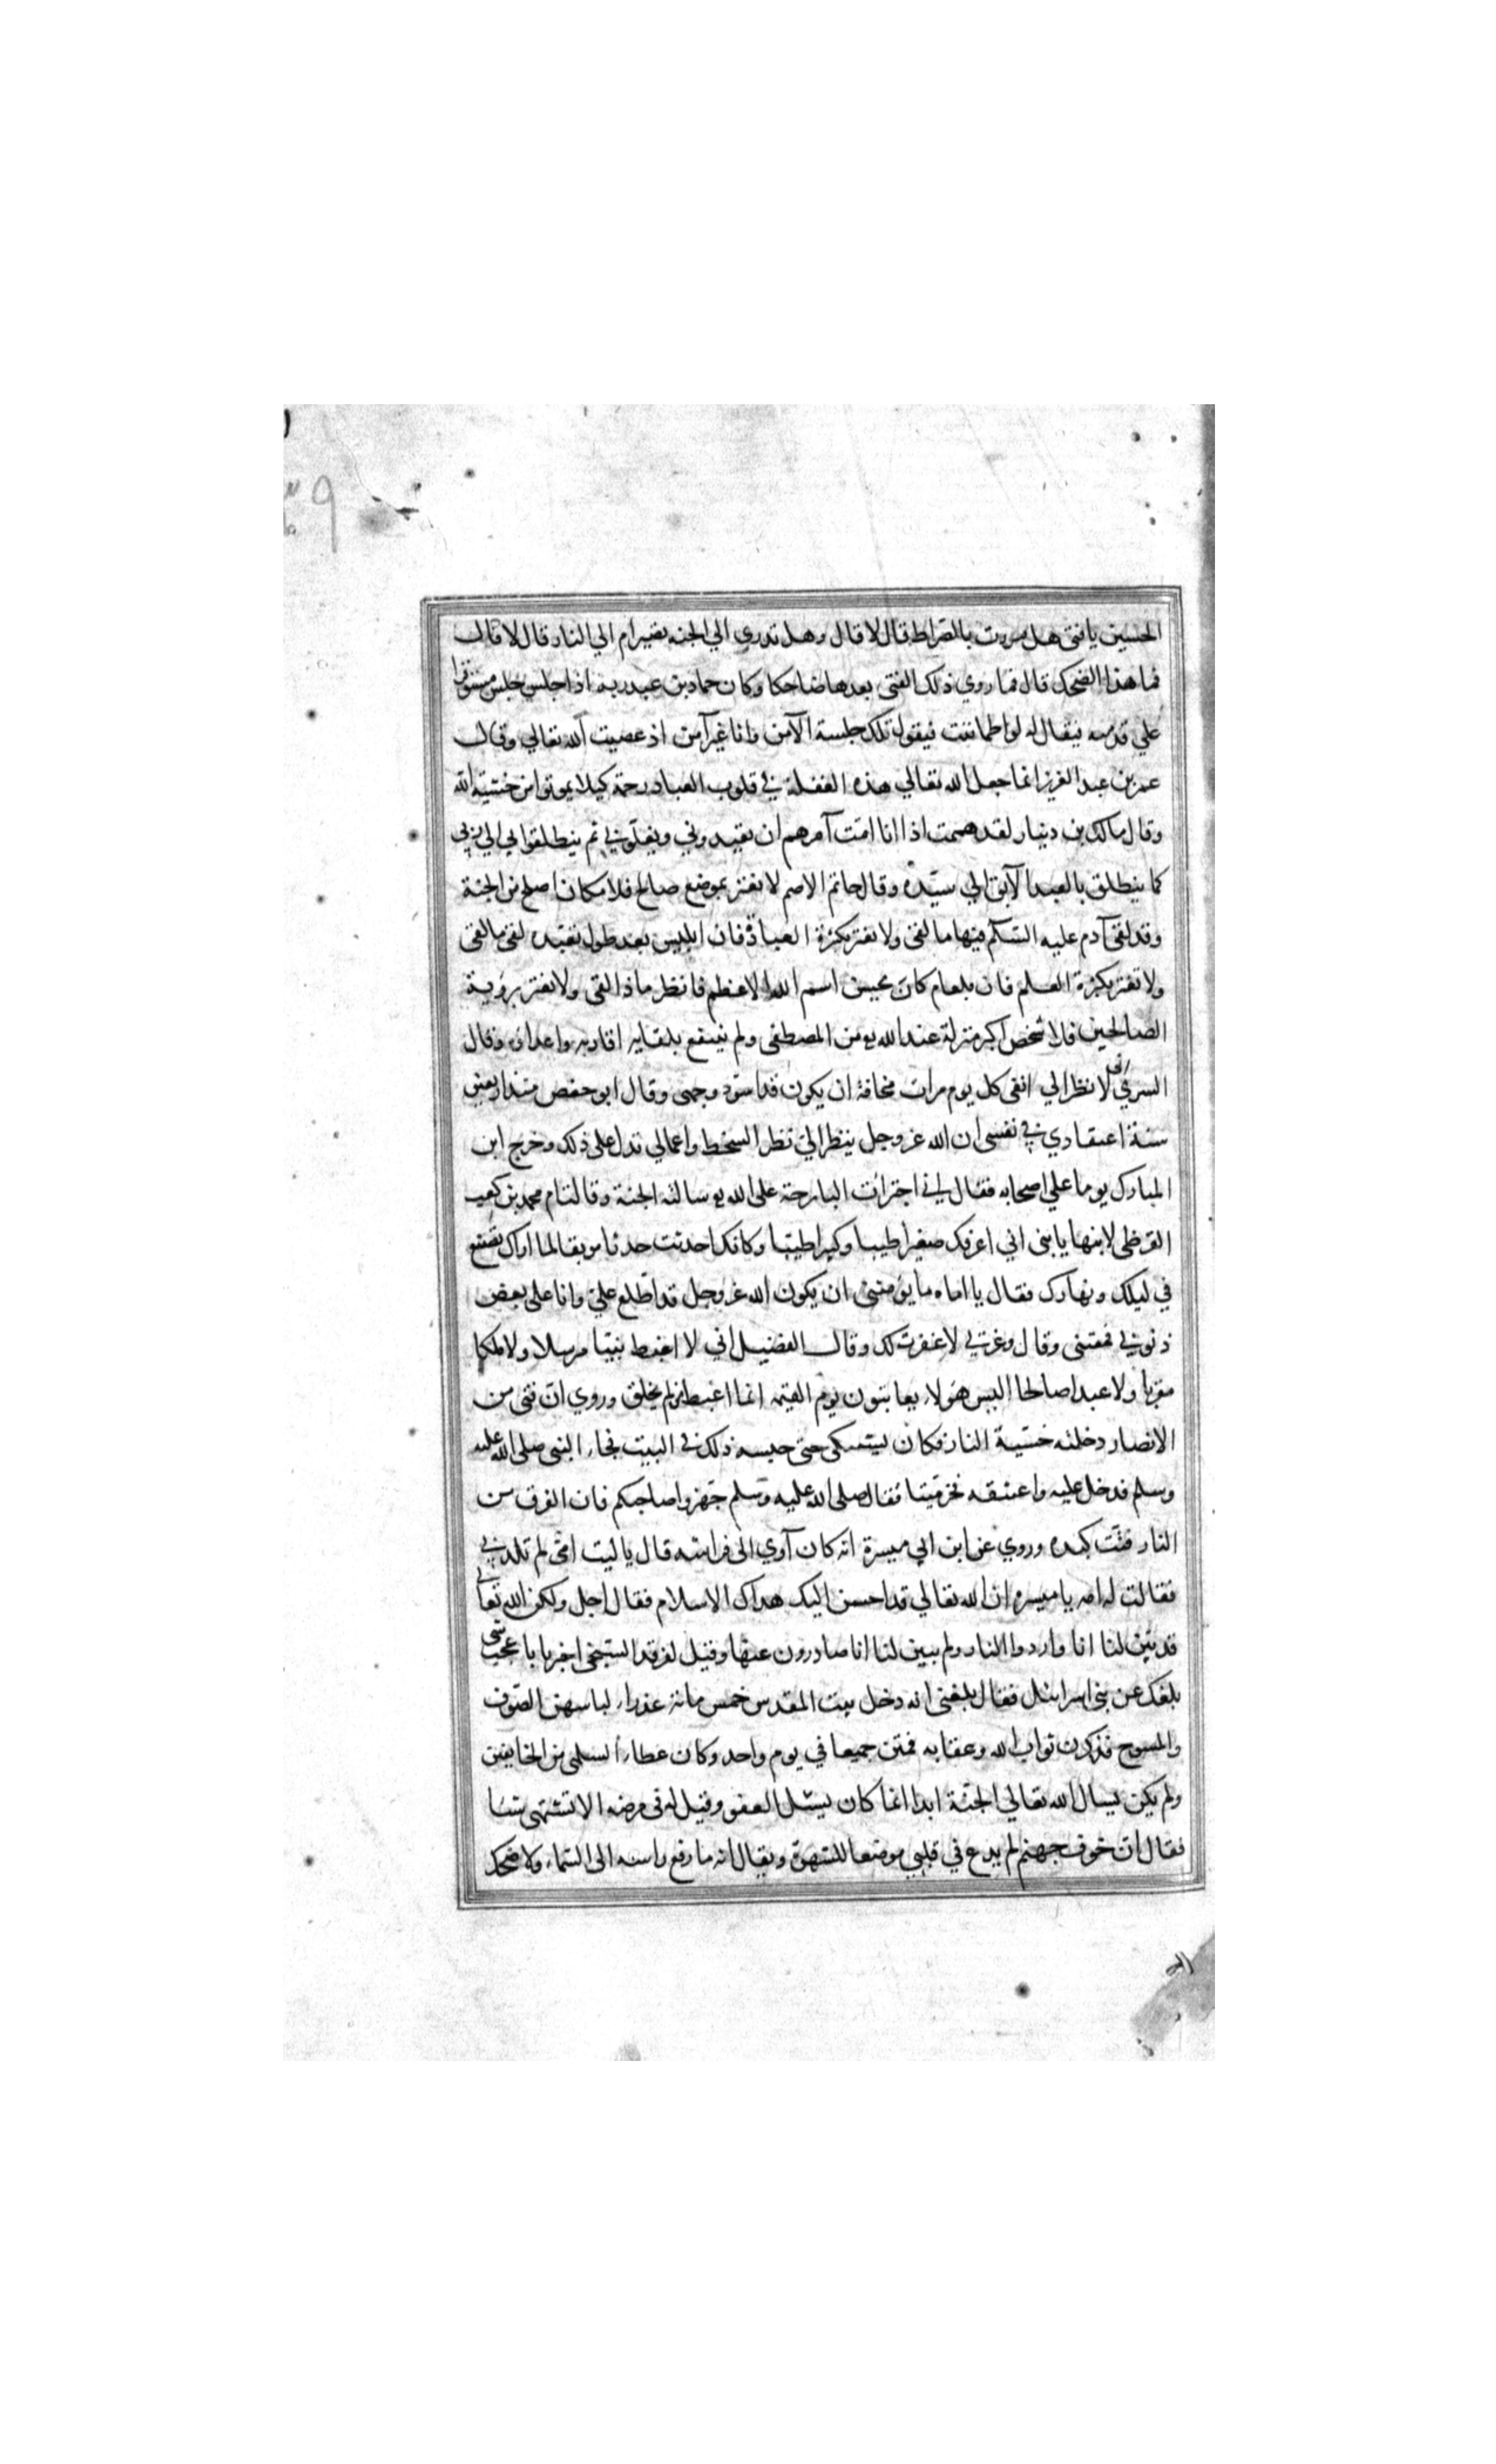 الحسين يا فتى هل مررت بالصراط قال لا قال وهل تدري الي الجنه تصير ام الي النار قال لا قال
فما هذا الضحك قال فما روي ذلك الفتى بعدها ضاحكا وكان حماد بن عبد ربه اذا جلس جلس مستوفزا
علي قدميه فيقال له لو اطماننت فيقول تلك جلسة الآمن وانا غير آمن اذ عصيت الله تعالي وقال
عمر بن عبد العزيز انما جعل الله تعالي هذه الغفلة في قلوب العباد رحمة كيلا يموتوا من خشية الله
وقال مالك بن دينار لقد هممت اذا انا امت آمرهم ان يقيدوني ويغلوني ثم ينطلقوا بي الي ربي
كما ينطلق بالعبد الآبق الي سيده وقال حاتم الاصم لا تغتر بموضع صالح فلا مكان اصلح من الجنة
وقد لقى آدم عليه السلام فيها ما لقى ولا تغتر بكثرة العبادة فان ابليس بعد طول تعبده لقى ما لقى
ولا تغتر بكثرة العلم فان بلعام كان يحسن اسم الله الاعظم فانظر ماذا لقى ولا تغتر برؤية
الصالحين فلا شخص اكبر منزلة عند الله تع من المصطفى ولم ينتفع بلقايه اقاربه واعداؤه وقال
السري انى لانظر الي انفى كل يوم مرات مخافة ان يكون قد اسود وجهى وقال ابو حفص منذ اربعين
سنة اعتقادي في نفسى ان الله عز وجل ينظر الي نظر السخط واعمالي تدل على ذلك وخرج ابن
المبارك يوما علي اصحابه فقال اني اجترات البارحة على الله تع سالته الجنة وقالت ام محمد بن كعب
القرظى لابنها يا بنى اني اعرفك صغيرا طيبا وكبيرا طيبا وكانك احدثت حدثا موبقا لما اراك تصنع
في ليلك ونهارك فقال يا اماه ما يؤمننى ان يكون الله عز وجل قد اطلع علي وانا على بعض
ذنوبي فمقتنى وقال وعزتي لا غفرت لك وقال الفضيل اني لا اغبط نبيا مرسلا ولا ملكا
مقربا ولا عبدا صالحا اليس هؤلاء يعاينون يوم القيمه انما اغبط من لم يخلق وروي ان فتى من
الانصار دخلته خشية النار فكان يبكى حتى حبسه ذلك في البيت فجاء النبى صلى الله عليه
وسلم فدخل عليه واعتنقه فخر ميتا فقال صلى الله عليه وسلم جهزوا صاحبكم فان الفرق من
النار فتت كبده وروي عن ابن ابي ميسرة انه كان آوي الى فراشه قال يا ليت امى لم تلدني
فقالت له امه يا ميسره ان الله تعالي قد احسن اليك هداك الاسلام فقال اجل ولكن الله تعالى
قد بين لنا انا واردوا النار ولم يبين لنا انا صادرون عنها وقيل لفرقد السبخى اخبرنا باعجب شى
بلغك عن بنى اسرائيل فقال بلغنى انه دخل بيت المقدس خمس مائة عذراء لباسهن الصوف
والمسوح فذكرن ثواب الله وعقابه فمتن جميعا في يوم واحد وكان عطاء السلمى من الخايفين
ولم يكن يسال الله تعالي الجنة ابدا انما كان يسئل العفو وقيل له في مرضه الا تشتهى شيئا
فقال ان خوف جهنم لم يدع في قلبي موضعا للشهوة ويقال انه ما رفع راسه الى السماء ولا ضحك